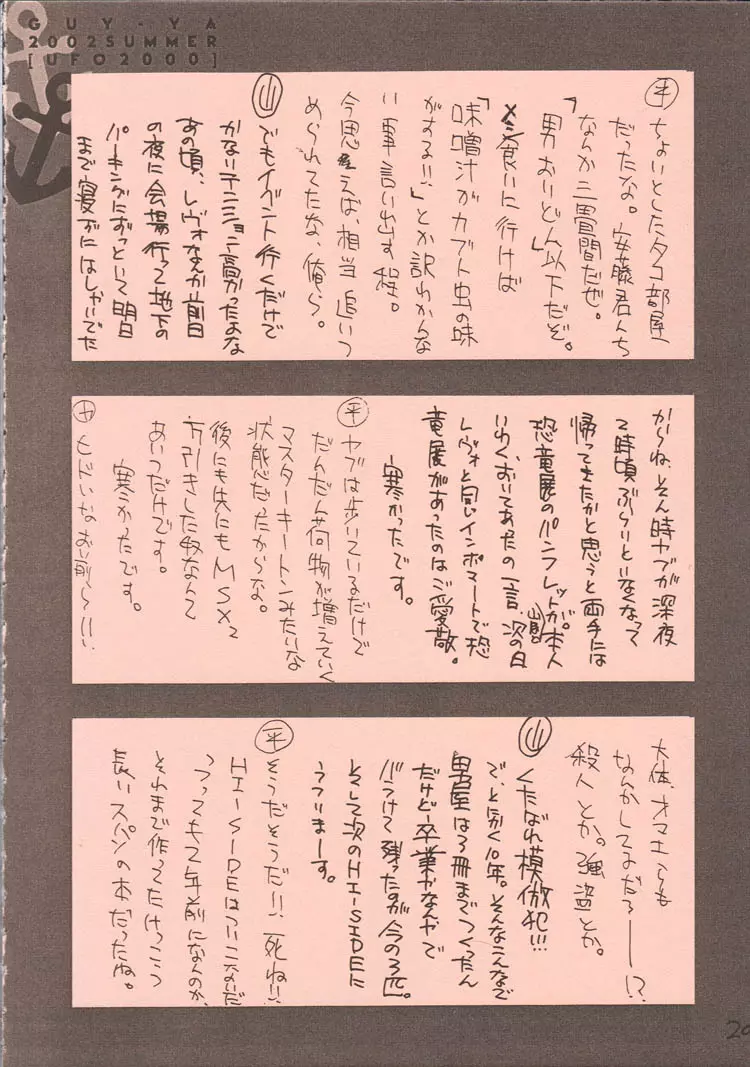 GUY-YA
2002SUMMER
[UFO2000]
㊥ ちょいとしたタコ部屋
だったな。安藤君んち
なんか三畳間だぜ。
「男おいどん以下だぞ。」
メシ食いに行けば
「味噌汁がカブト虫の味
がする!!」とか訳わかんな
い事言い出す程。
今思えば、相当追いつ
められてたな、俺ら。
山 でもイベント行くだけで
かなりテンション高かったよな
あの頃、レヴォなんか前日
の夜に会場行って地下の
パーキングにずっといて明日
まで寝ずにはしゃいでた
からね、そん時ヤブが深夜
2時頃ぶらりといなくなって
帰ってきたかと思うと両手には
恐竜展のパンフレットが。本人
いわく、おいてあたの一言、次の日
レヴォと同じインポマートで恐
竜展があったのはご愛敬。
寒かったです。
平 ヤブは歩いているだけで
だんだん荷物が増えていく
マスターキートンみたいな
状態だったからな。
後にも先にもMSX2
万引きした奴なんて
あいつだけです。
寒かったです。
ヤ ヒドいなお前ら!!!
大体、オマエらも
なんかしてるだろーー!?
殺人とか。強盗とか。
山 くたばれ模倣犯!!!
で、と気く10年。そんなこんなで
男屋は3冊までつくったん
だけど卒業やなんやで
バラけて残ったのが今の3匹。
そして次のHI-SIDEに
うつりまーす。
平 そうだそうだ!!死ね!!
HI-SIDEはついこないだ
っつっても2年前になんのか、
それまで作ってたけっこう
長いスパンの本だったね。